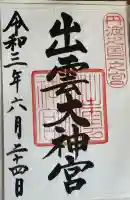 丹波國一之宮
出雲大神宮
令和三年六月二十四日